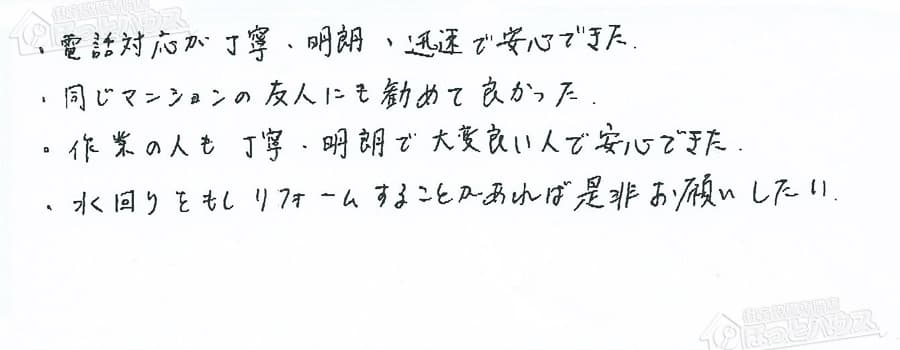 ・電話対応が丁寧、明朗、迅速で安心できた.
・同じマンションの友人にも勧めて良かった.
・作業の人も 丁寧・明朗で大変良い人で安心できた.
・水回りをもしリフォームすることがあれば是非お願いしたい.
ほっとハウス